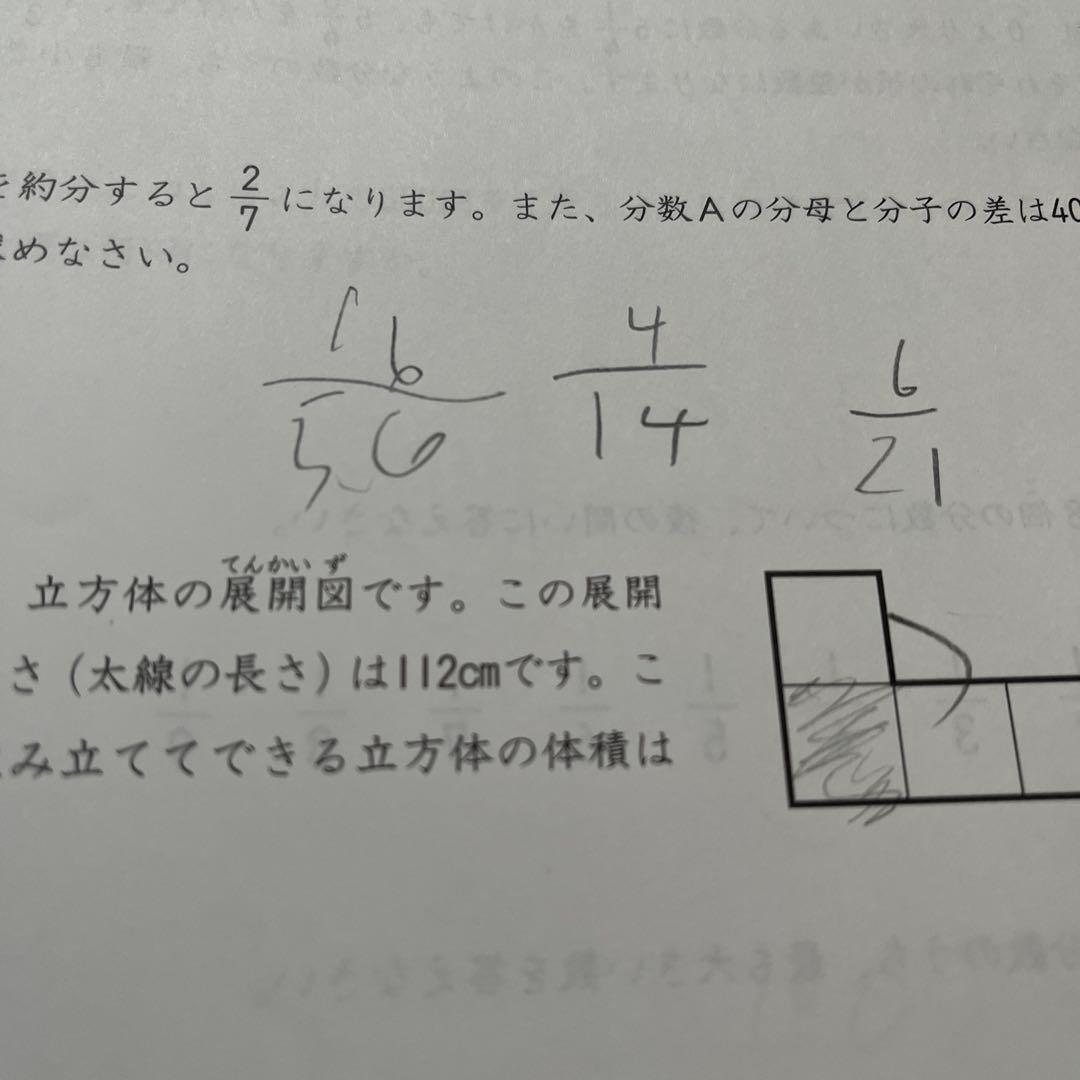 約分すると 2/7 になります。また、分数Aの分母と分子の差は40
めなさい。
16/56 4/14 6/21
立方体の展開図です。この展開
てんかいず
さ(太線の長さ)は112cmです。こ
み立ててできる立方体の体積は